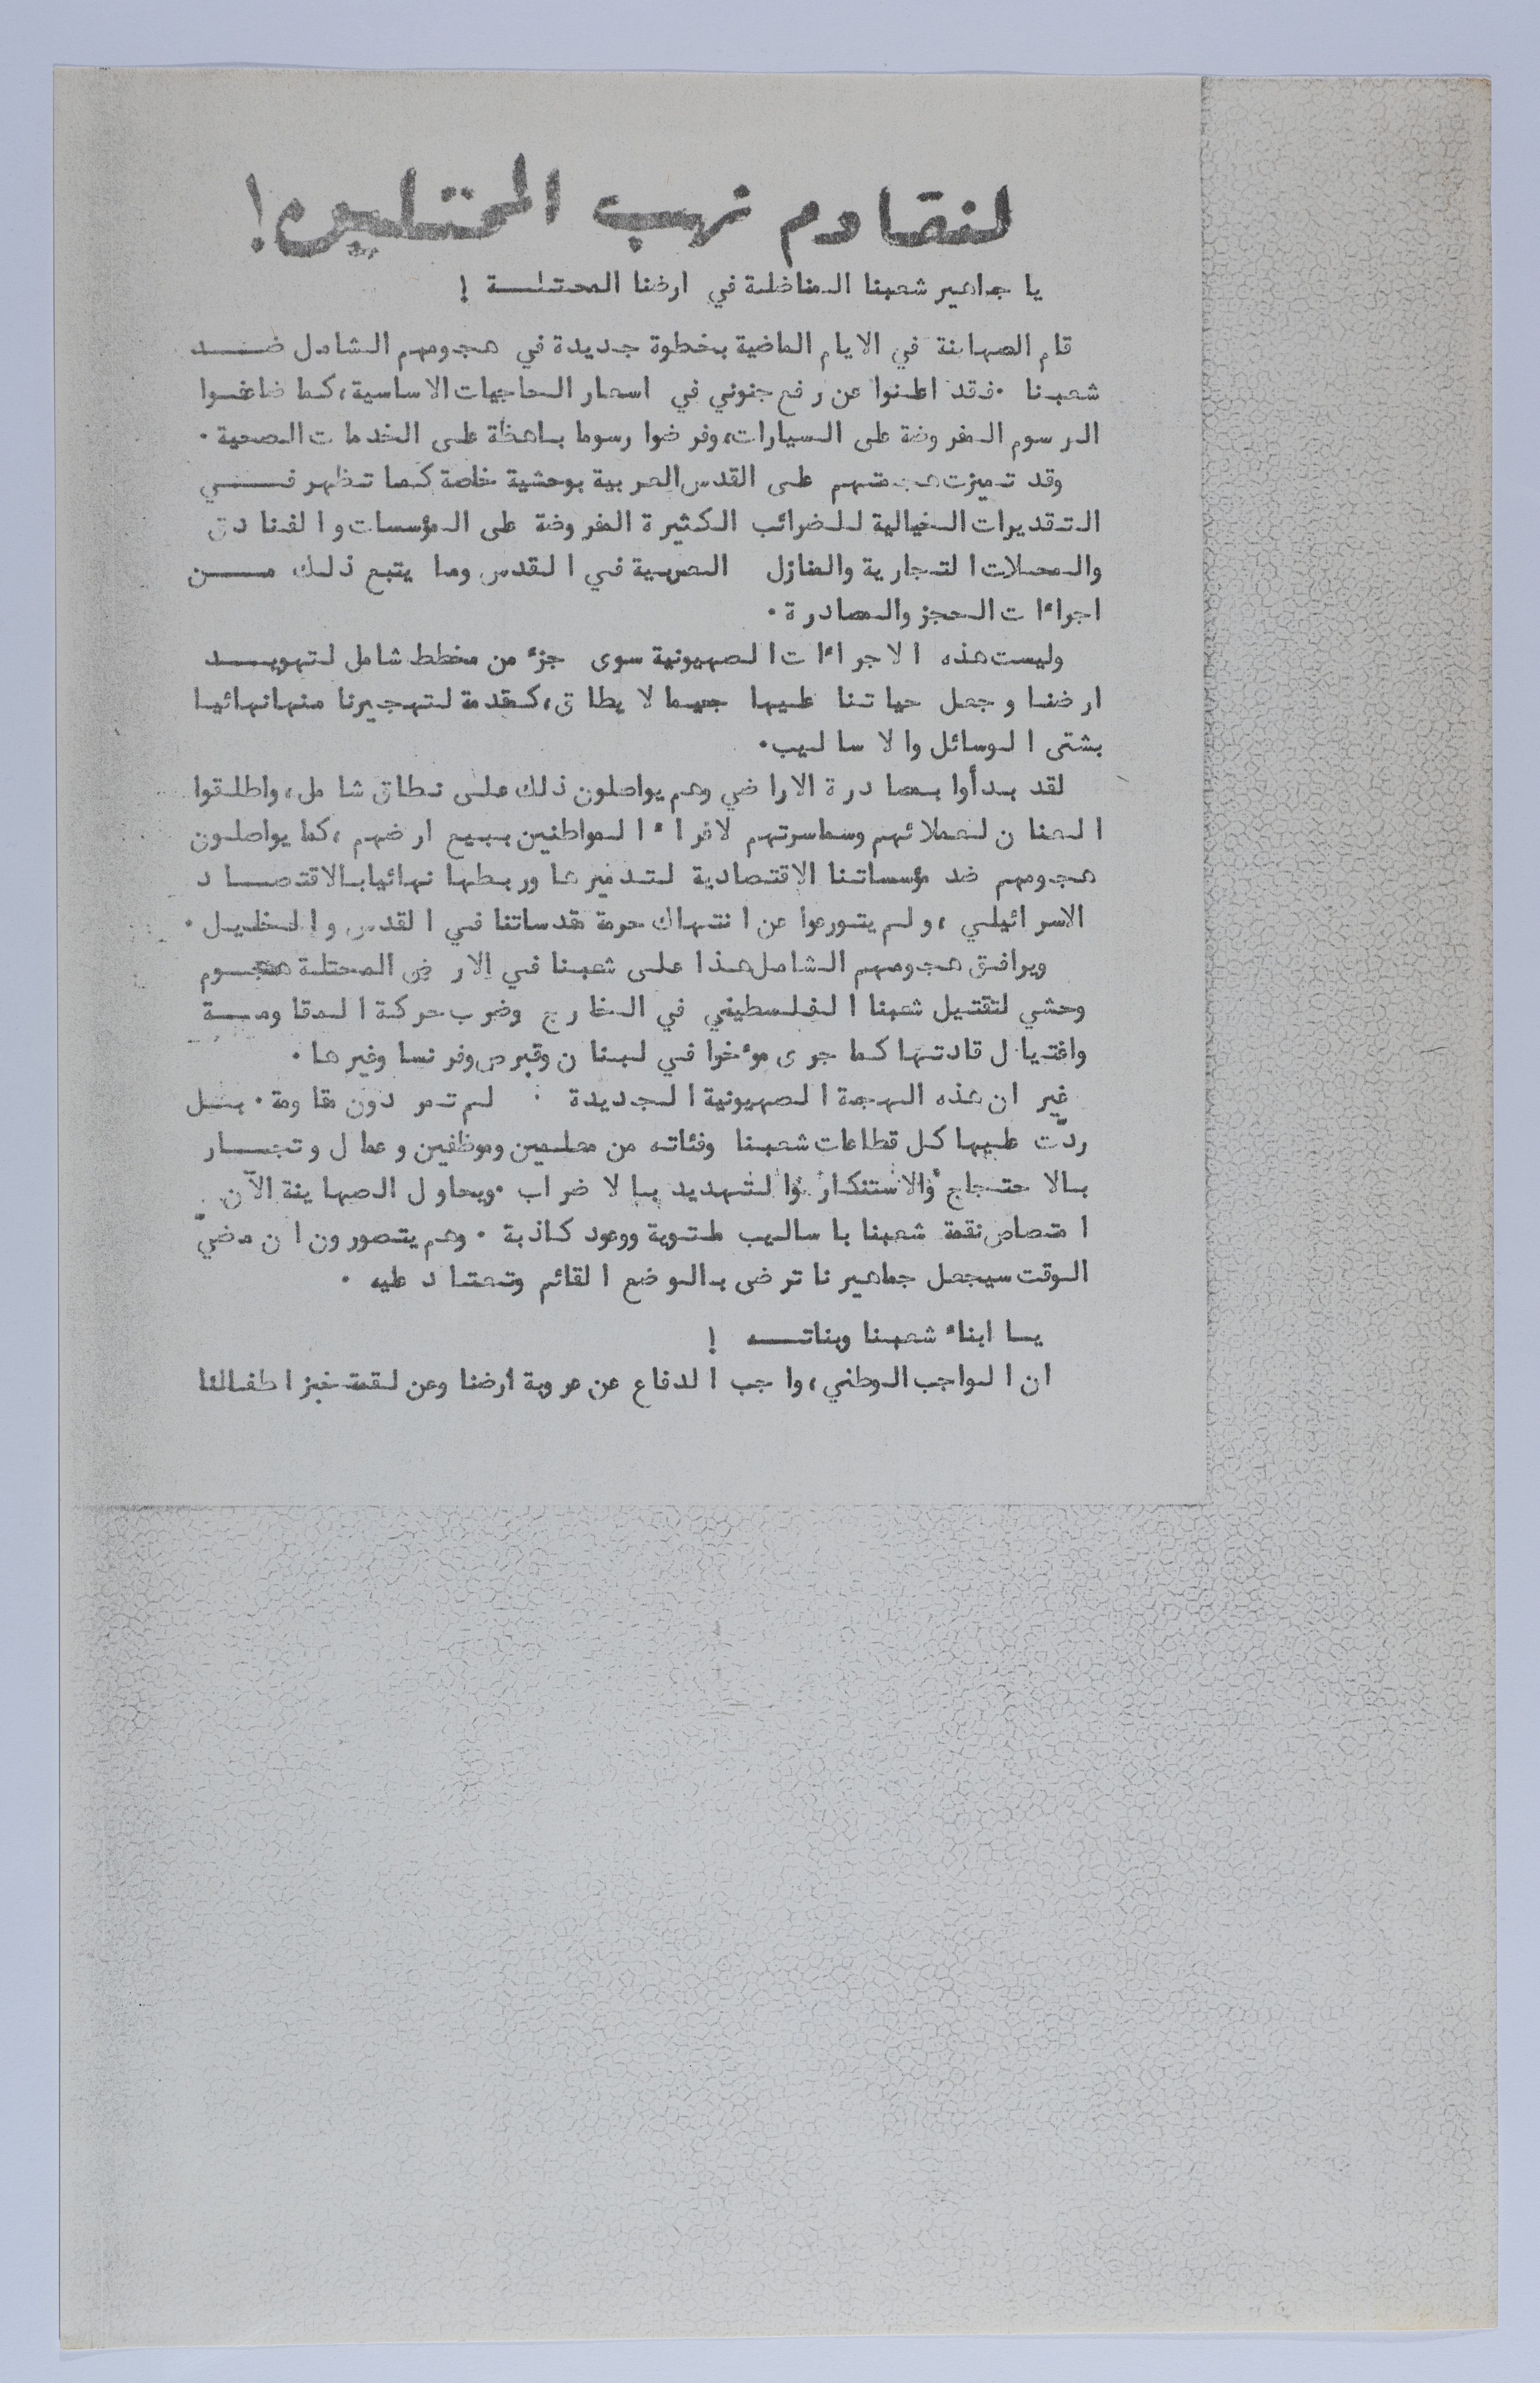 لنقاوم نهب المحتلين!
يا جماهير شعبنا المناضلة في ارضنا المحتلــــة !
قام الصهاينة في الايام الماضية بخطوة جديدة في هجومهم الشامل ضــــد
شعبنا ٠فقد اعلنوا عن رفع جنوني في اسعار الحاجيات الاساسية، كما ضاعفــوا
الرسوم المفروضة على السيارات، وفرضوا رسوما باهظة على الخدمات الصحية ٠
وقد تميزت هجمتهم على القدس العربية بوحشية خاصة كما تظهر فــــي
التقديرات الخيالية للضرائب الكثيرة المفروضة على المؤسسات والفنادق
والمحلات التجارية والمنازل العربية في القدس وما يتبع ذلك مـــــن
اجراءات الحجز والمصادرة ٠
وليست هذه الاجراءات الصهيونية سوى جزء من مخطط شامل لتهويــــد
ارضنا وجعل حياتنا عليها جحيما لا يطاق، كمقدمة لتهجيرنا منها نهائيا
بشتى الوسائل والاساليب٠
لقد بدأوا بمصادرة الاراضي وهم يواصلون ذلك على نطاق شامل، واطلقوا
العنان لعملائهم وسماسرتهم لاغراء المواطنين ببيع ارضهم ، كما يواصلون
هجومهم ضد مؤسساتنا الاقتصادية لتدميرها وربطها نهائيا بالاقتصـــاد
الاسرائيلي ، ولم يتورعوا عن انتهاك حرمة مقدساتنا في القدس والخليل ٠
ويرافق هجومهم الشامل هذا على شعبنا في الارض المحتلة هجــوم
وحشي لتقتيل شعبنا الفلسطيني في الخارج وضرب حركة المقاومــــة
واغتيال قادتها كما جرى موءخرا في لبنان وقبرص وفرنسا وغيرها ٠
غير ان هذه الهجمة الصهيونية الجديدة لم تمر دون مقاومة ٠ بــل
ردّت عليها كل قطاعات شعبنا وفئاته من معلمين وموظفين وعمال وتجــار
بالاحتجاج والاستنكار والتهديد بالاضراب ٠ويحاول الصهاينة الآن
امتصاص نقمة شعبنا باساليب ملتوية ووعود كاذبة ٠ وهم يتصورون ان مضيّ
الوقت سيجعل جماهيرنا ترضى بالوضع القائم وتعتاد عليه ٠
يــا ابناء شعبنا وبناتـــه !
ان الواجب الوطني، واجب الدفاع عن عروبة ارضنا وعن لقمة خبز اطفالنا